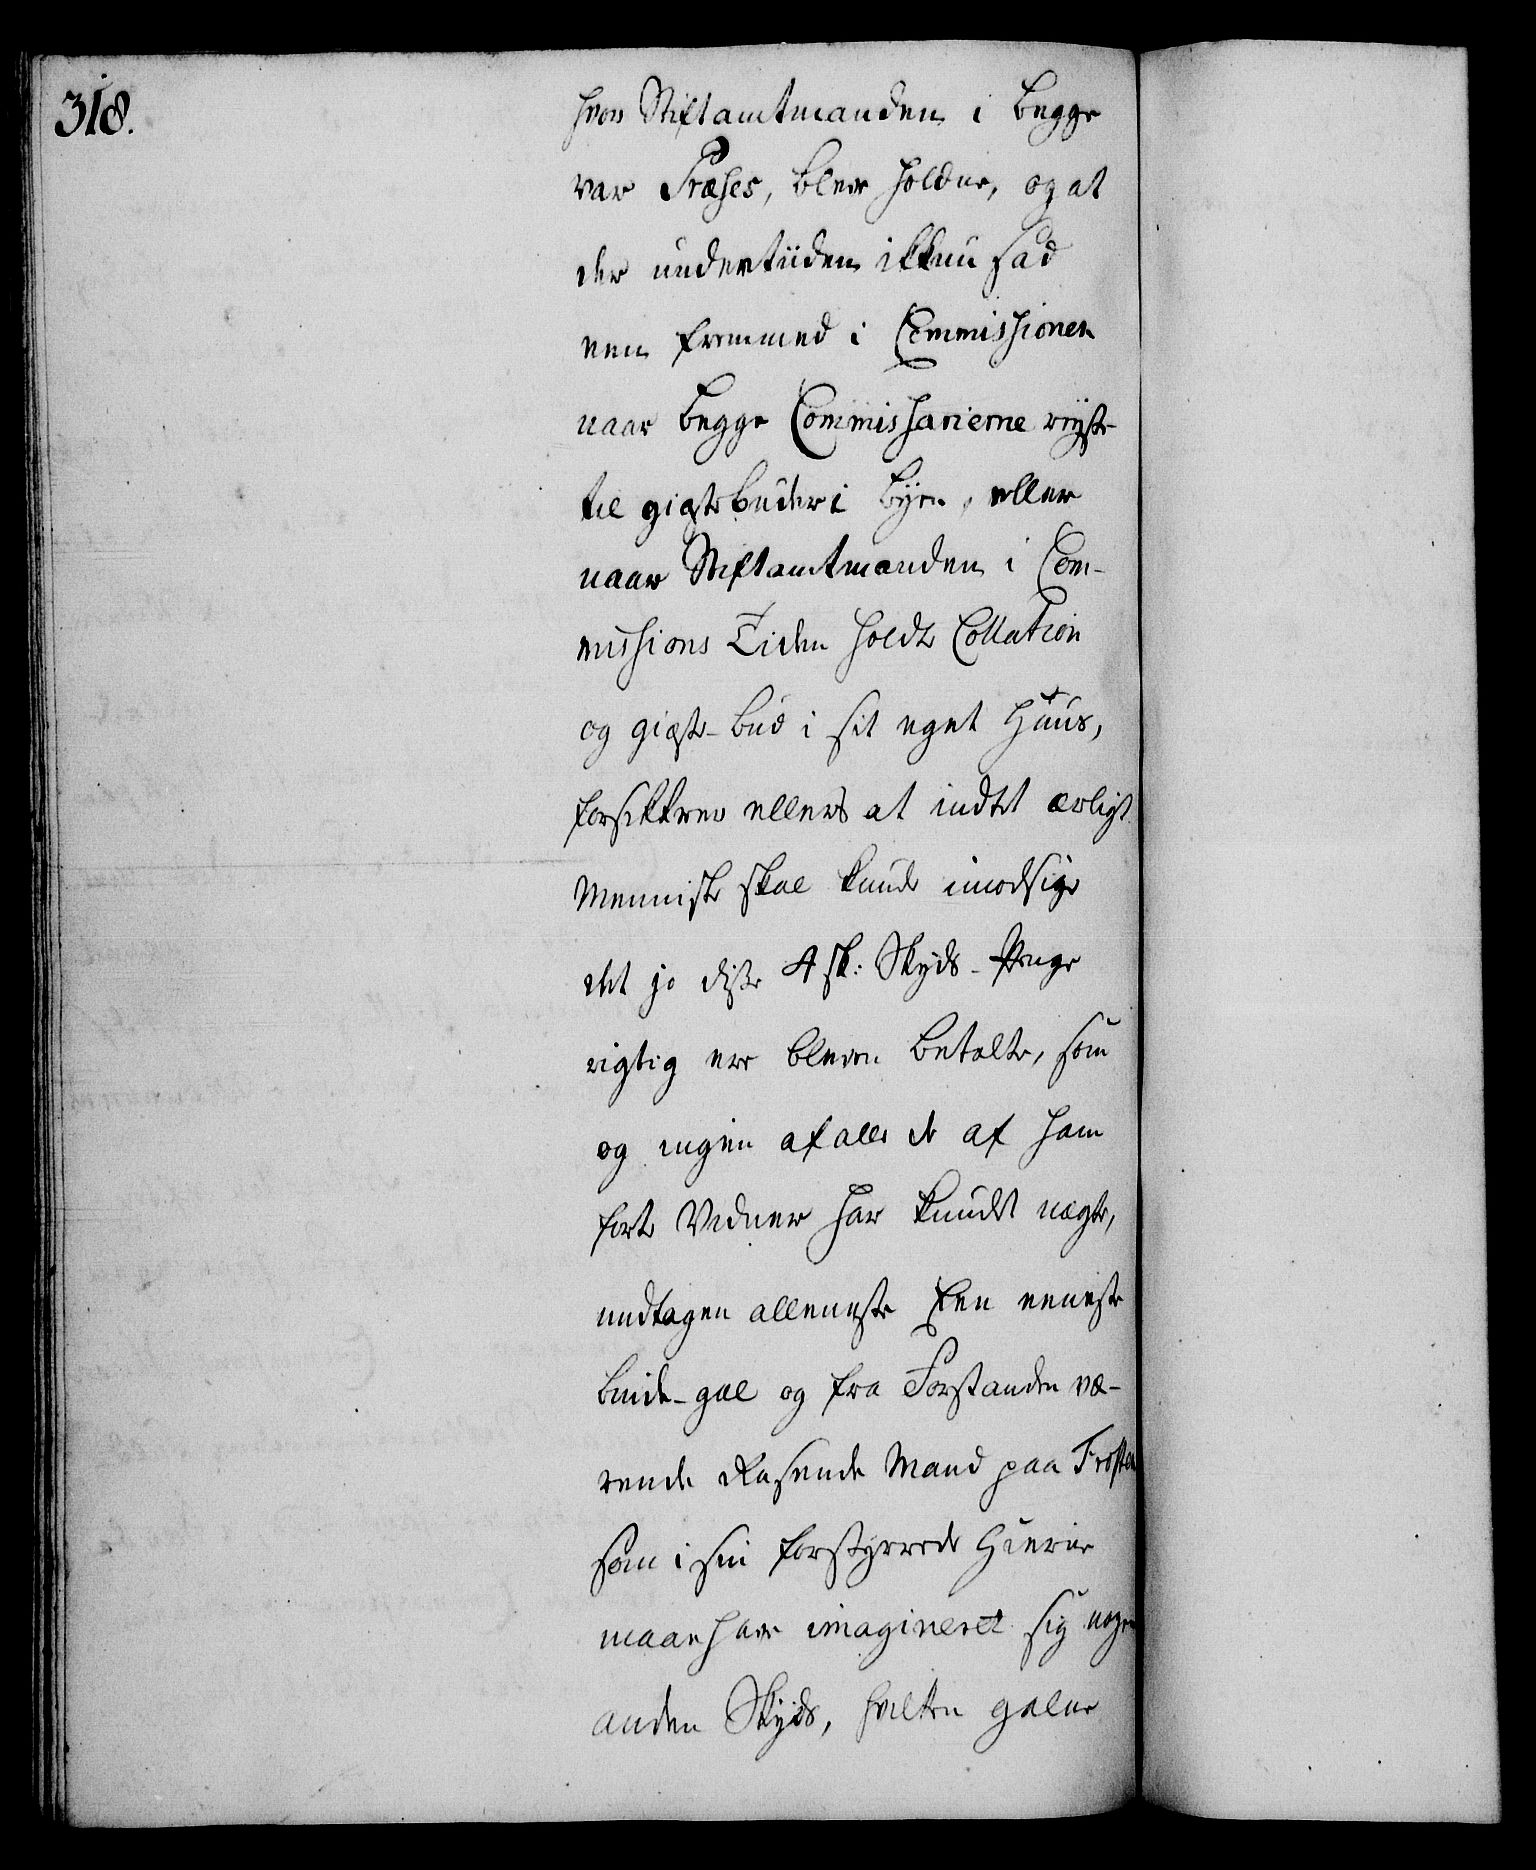 318.
hvor Stiftamtmanden i begge
var Præses, blev holdne, og at
der undertiiden ikkun sad
een fremmed i Commissionen
naar begge Commissarierne reyste
til giæstebuder i byen, eller
naar Stiftamtmanden i Com-
missions Tiden holdt Collation
og giæste-bud i sit eget Huus,
forsikkrer ellers at indtet ærligt
Menniske skal kunde imodsige
det jo disse 4 sk: Skyds-Penge
rigtig ere bleven betalte, som
og ingen af alle de af ham
førte Vidner har kundet nægte,
undtagen alleneste Een eneste
binde-gal og fra Forstanden væ-
rende Rasende Mand paa Frosten
som i sin forstyrrede Hierne
maae have imagineret sig nogen
anden Skyds, hvilken galne